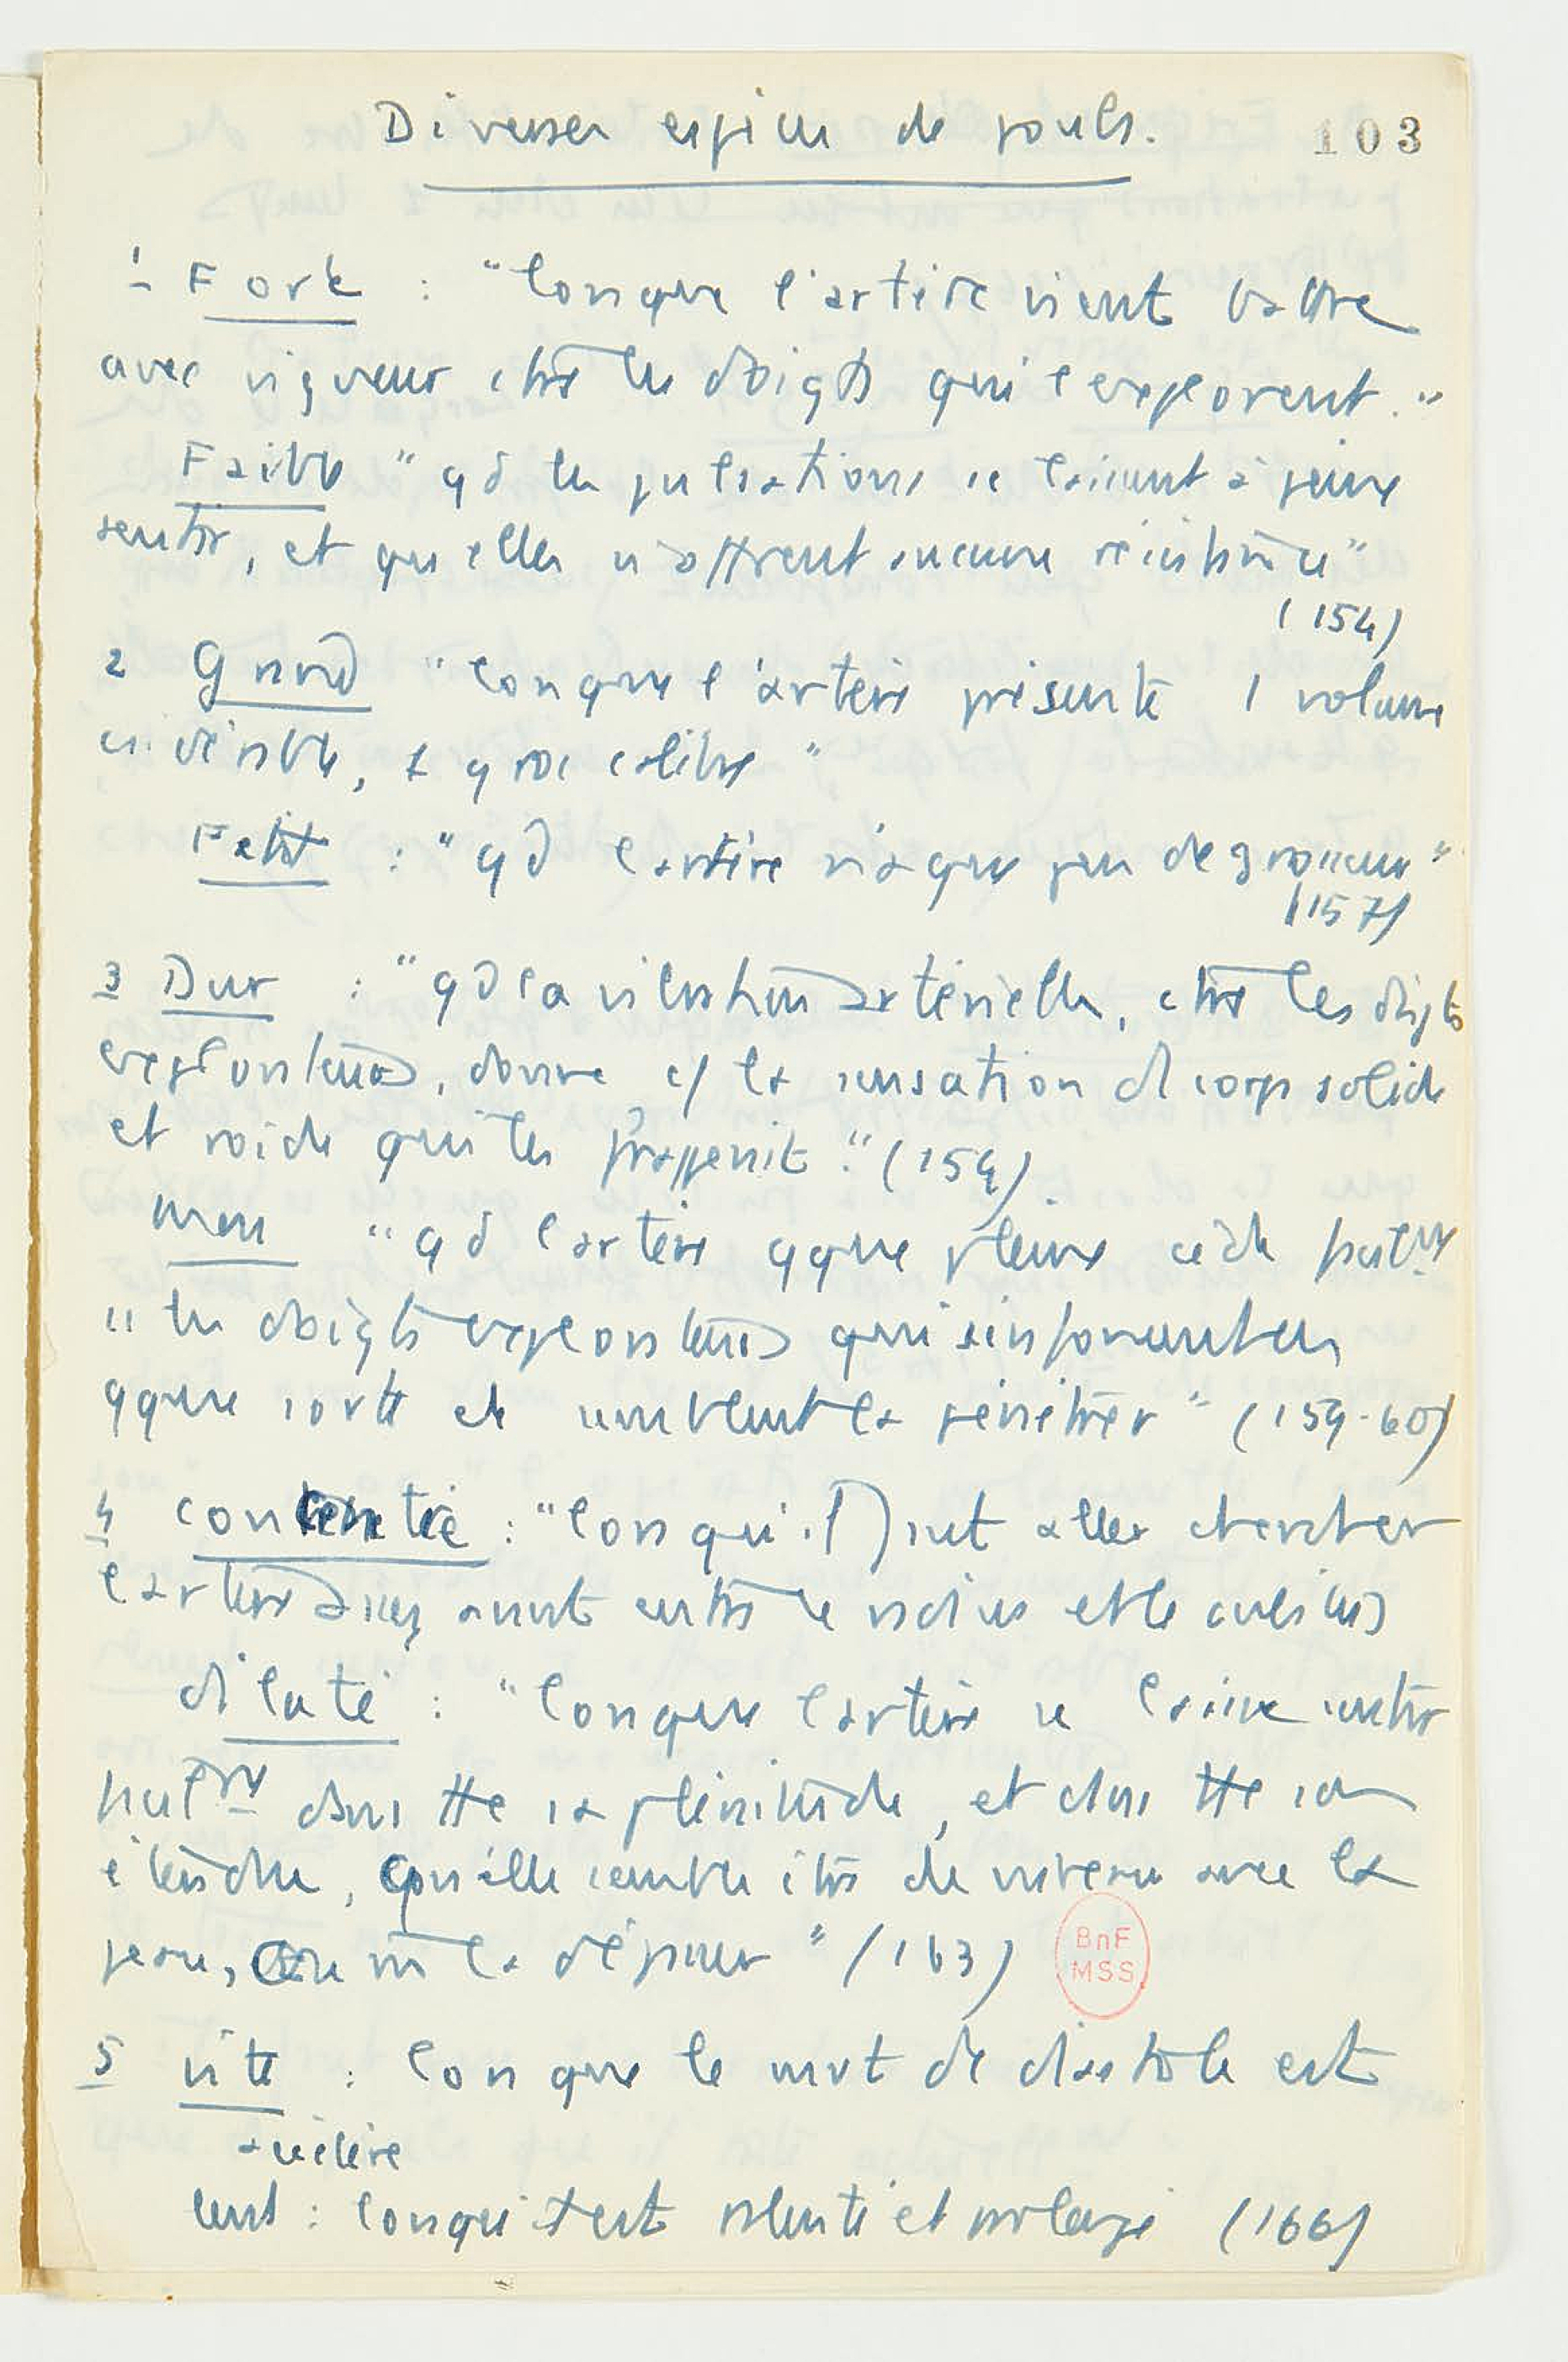 Diverses espèces de pouls.
103
1 Fort : "lorsque l'artère vient battre
avec vigueur ctre les doigts qui l'explorent."
Faible "qd les pulsations se laissent à peine
sentir, et qu'elles n'offrent aucune résistance"
(154)
2 Grand "lorsque l'artère présente 1 volume
considérable, 1 gros calibre"
Petit : "qd l'artère n'a que peu de grosseur"
(157)
3 Dur : "qd la vibration artérielle, ctre les doigts
explorateurs, donne c/ la sensation d'1 corps solide
et roide qui les frapperait." (159).
mou "qd l'artère qque pleine cède sous
les doigts explorateurs qui s'insinuent en
qque sorte et semblent la pénétrer" (159-60)
4 concentré : "lorsqu'il faut aller chercher
l'artère assez avant entre le radius et le cubitus
dilaté : "lorsque l'artère se laisse sentir
dans tte sa plénitude, et dans tte son
étendue, qu'elle semble être de niveau avec la
peau, ou même la dépasser" (163)
BnF
MSS
5 vite : lorsque le mvt de diastole est
accéléré
lent : lorsqu'il est ralenti et prolongé (166)